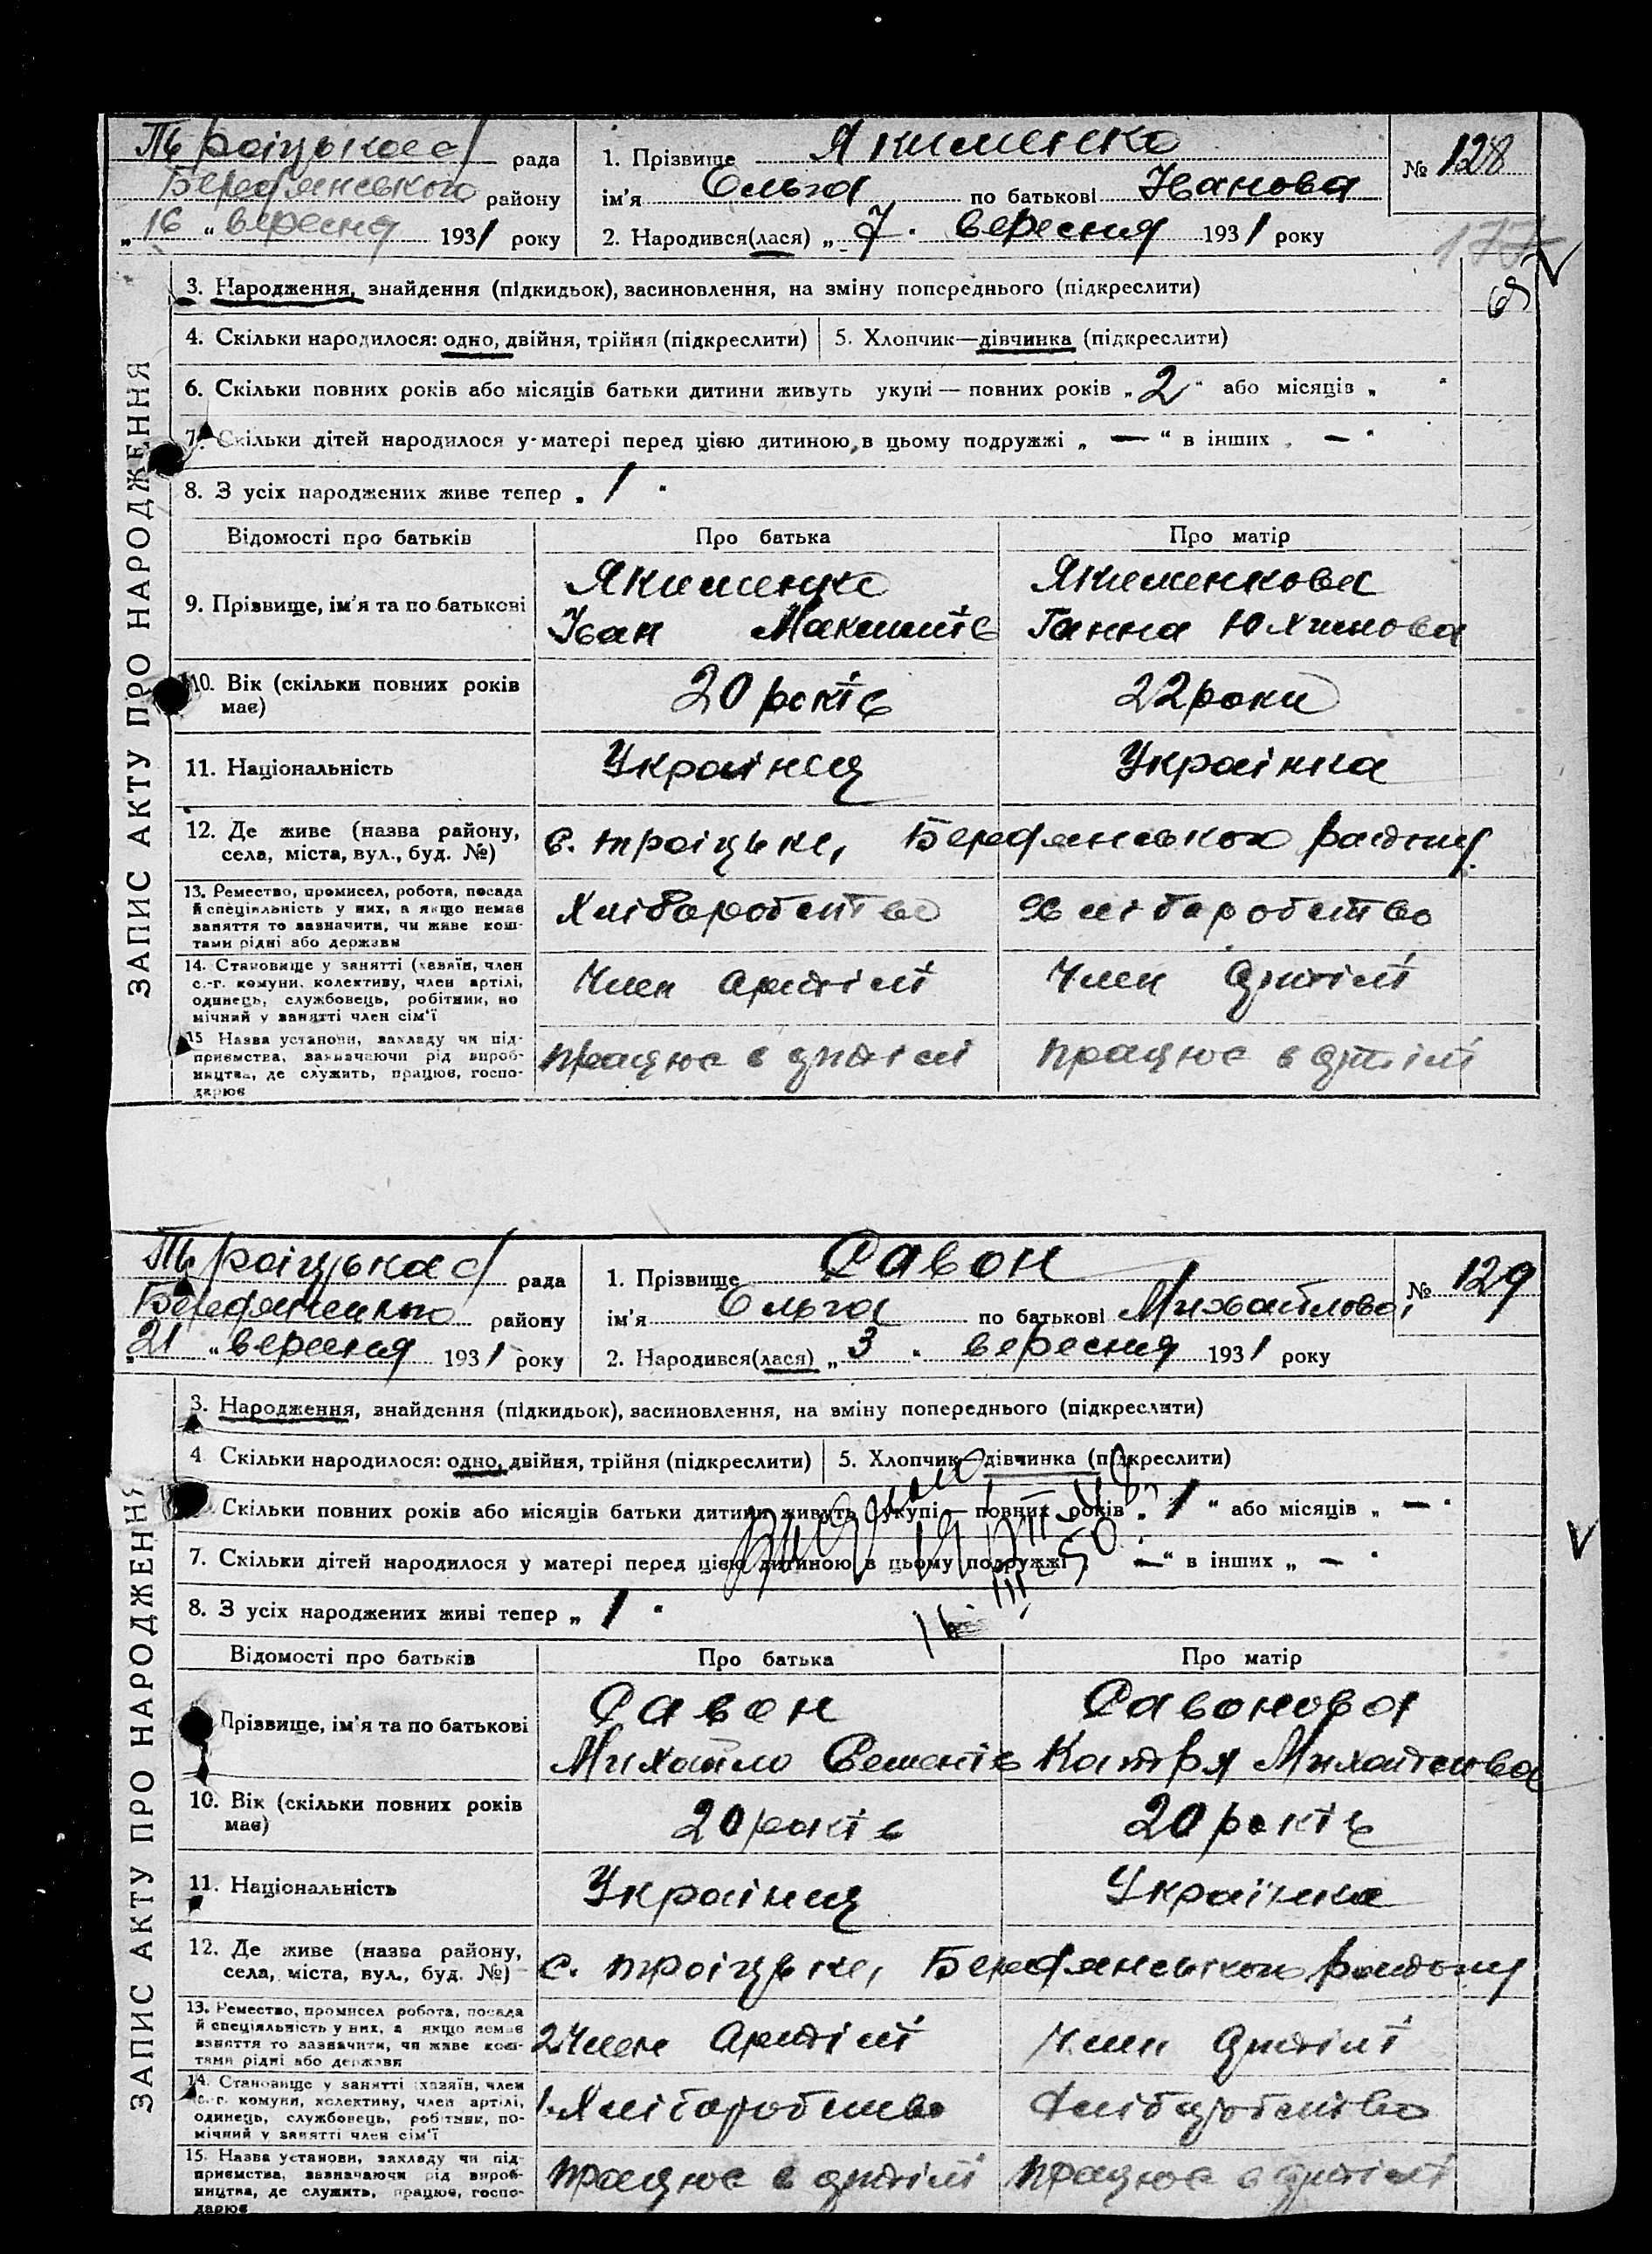 Троіцька рада
Бердянського району
„16“ вересня 1931 року
1. Прізвище Якименко
ім'я Ольга по батькові Іванова
2. Народився(лася) „7“ вересня 1931 року
№ 128
177
3. Народження, знайдення (підкидьок), засиновлення, на зміну попереднього (підкреслити)
4. Скільки народилося: одно, двійня, трійня (підкреслити) 5. Хлопчик—дівчинка (підкреслити)
6. Скільки повних років або місяців батьки дитини живуть укупі — повних років „2“ або місяців „ “
7. Скільки дітей народилося у матері перед цією дитиною в цьому подружжі „ — “ в інших „ — “
8. З усіх народжених живе тепер „1“
Відомості про батьків Про батька Про матір
9. Прізвище, ім'я та по батькові
Якименко Якименкова
Іван Максимів Ганна Юхимова
10. Вік (скільки повних років має) 20 років 22 роки
11. Національність Украінец Украінка
12. Де живе (назва району, села, міста, вул., буд. №) с. троіцьке, Бердянського району
13. Ремество, промисел, робота, посада
й спеціяльність у них, а якщо немає
заняття то зазначити, чи живе кош-
тами рідні або держави
Хліборобство Хліборобство
14. Становище у занятті (хазяїн, член
с.-г. комуни, колективу, член артілі,
одинець, службовець, робітник, по
мічний у занятті член сім'ї
Член артілі Член артілі
15 Назва установи, закладу чи під-
приємства, зазначаючи рід вироб-
ництва, де служить, працює, госпо-
дарює
працює в артілі працює в артілі
ЗАПИС АКТУ ПРО НАРОДЖЕННЯ
Троіцька рада
Бердянського району
„21“ вересня 1931 року
1. Прізвище Савон
ім'я Ольга по батькові Михайлова
2. Народився(лася) „3“ вересня 1931 року
№ 129
3. Народження, знайдення (підкидьок), засиновлення, на зміну попереднього (підкреслити)
4 Скільки народилося: одно, двійня, трійня (підкреслити) 5. Хлопчик—дівчинка (підкреслити)
Скільки повних років або місяців батьки дитини живуть укупі — повних років „1“ або місяців „ — “
7. Скільки дітей народилося у матері перед цією дитиною в цьому подружжі „ — “ в інших „ — “
8. З усіх народжених живі тепер „1“
Відомості про батьків Про батька Про матір
Прізвище, ім'я та по батькові
Савон Савонова
Михайло Семенів Катря Михайлова
10. Вік (скільки повних років має) 20 років 20 років
11. Національність Украінец Українка
12. Де живе (назва району, села, міста, вул., буд. №) с. троіцьке, Бердянського району
13. Ремество, промисел робота, посада
й спеціяльність у них, а якщо немає
заняття то зазначити, чи живе кош-
тами рідні або держави
2 Член артілі Член артілі
14. Становище у занятті (хазяїн, член
с.-г. комуни, колективу, член артілі,
одинець, службовець, робітник, по-
мічний у занятті член сім'ї
1. Хліборобство Хліборобство
15. Назва установи, закладу чи під-
приємства, зазначаючи рід вироб-
ництва, де служить, працює, госпо-
дарює
працює в артілі працює в артілі
ЗАПИС АКТУ ПРО НАРОДЖЕННЯ